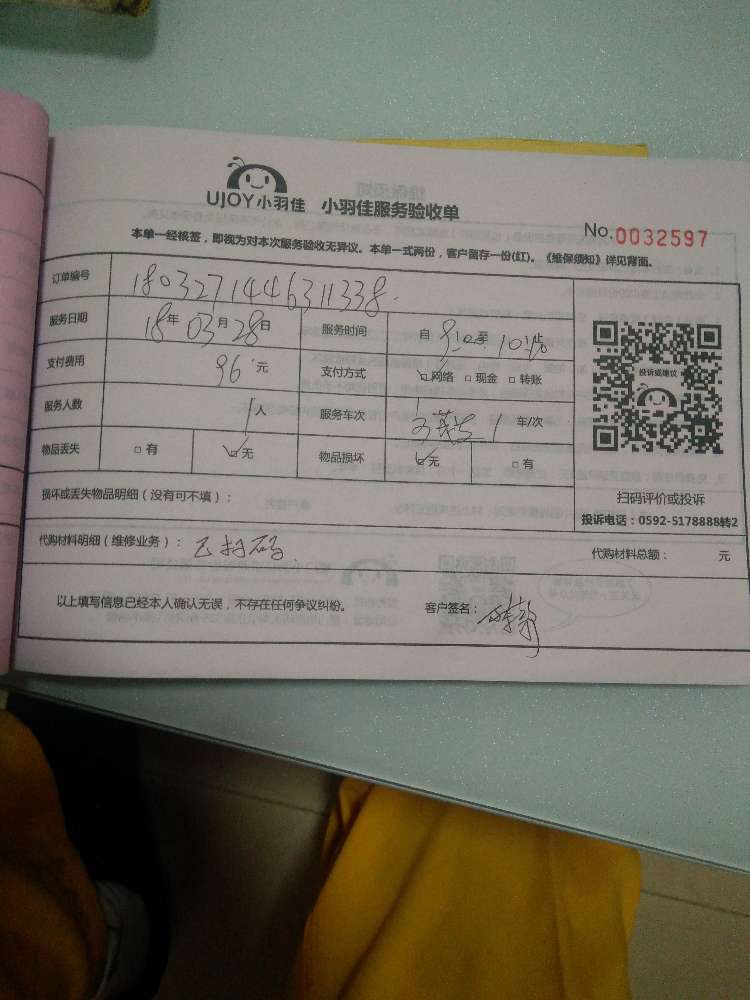 UJOY小羽佳 小羽佳服务验收单
No.0032597
本单一经核签，即视为对本次服务验收无异议。本单一式两份，客户留存一份(红)。《维保须知》详见背面。
订单编号 1803271446311338
服务日期 18年03月28日 服务时间 自9:10至10:
支付费用 96元 支付方式 ☑网络 □现金 □转账
服务人数 1人 服务车次 1车/次
物品丢失 □有 ☑无 物品损坏 ☑无 □有
投诉或建议
扫码评价或投诉
投诉电话：0592-5178888转2
损坏或丢失物品明细（没有可不填）：
代购材料明细（维修业务）：已扫码 代购材料总额： 元
以上填写信息已经本人确认无误，不存在任何争议纠纷。 客户签名：